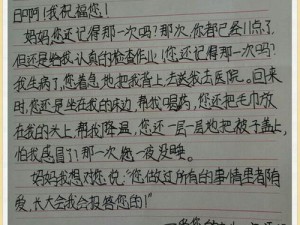 日啊!我祝福您!
妈妈您还记得那一次吗?那次,你都已经11点了
但还是给我认真的检查作业!您还记得那一次吗?
我生病了,您着急地把我背上去送我去医院。回来
时,您还是坐在我的床边,帮我喝药,您还把毛巾放
在我的头上,帮我降温,您还一层一层地把被子盖上,
怕我感冒了!那一次,您一夜没睡。
妈妈我想对您说,“您做过所有的事情里都有
爱,长大会我会报答您的!”